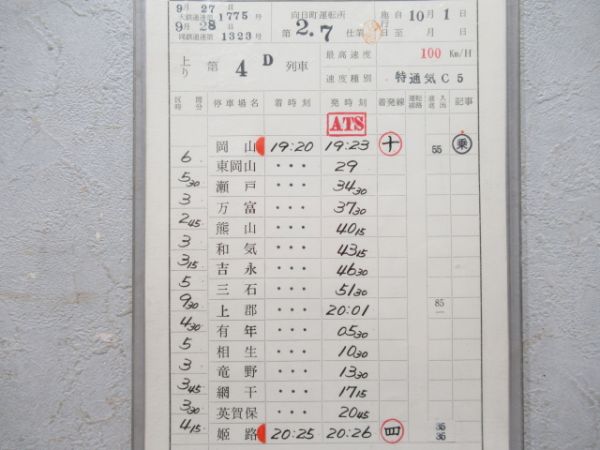 9月27日
大鉄道運第1775号
9月28
岡鉄道運第1323号
向日町運転所
第2.7仕業
施行 自10月1日
至 月 日
上り 第 4 D 列車
最高速度 100 Km/H
速度種別 特通気C5
区間時分 停車場名 着時刻 発時刻 着発線 記事
ATS
岡山 19:20 19:23 十 55 乗
6
東岡山 ・・・ 29
5 30
瀬戸 ・・・ 34 30
3
万富 ・・・ 37 30
2 45
熊山 ・・・ 40 15
3
和気 ・・・ 43 15
3 15
吉永 ・・・ 46 30
5
三石 ・・・ 51 30
9 30
上郡 ・・・ 20:01 85
4 30
有年 ・・・ 05 30
5
相生 ・・・ 10 30
3
竜野 ・・・ 13 30
3 45
網干 ・・・ 17 15
3 30
英賀保 ・・・ 20 45
4 15
姫路 20:25 20:26 四 35
35